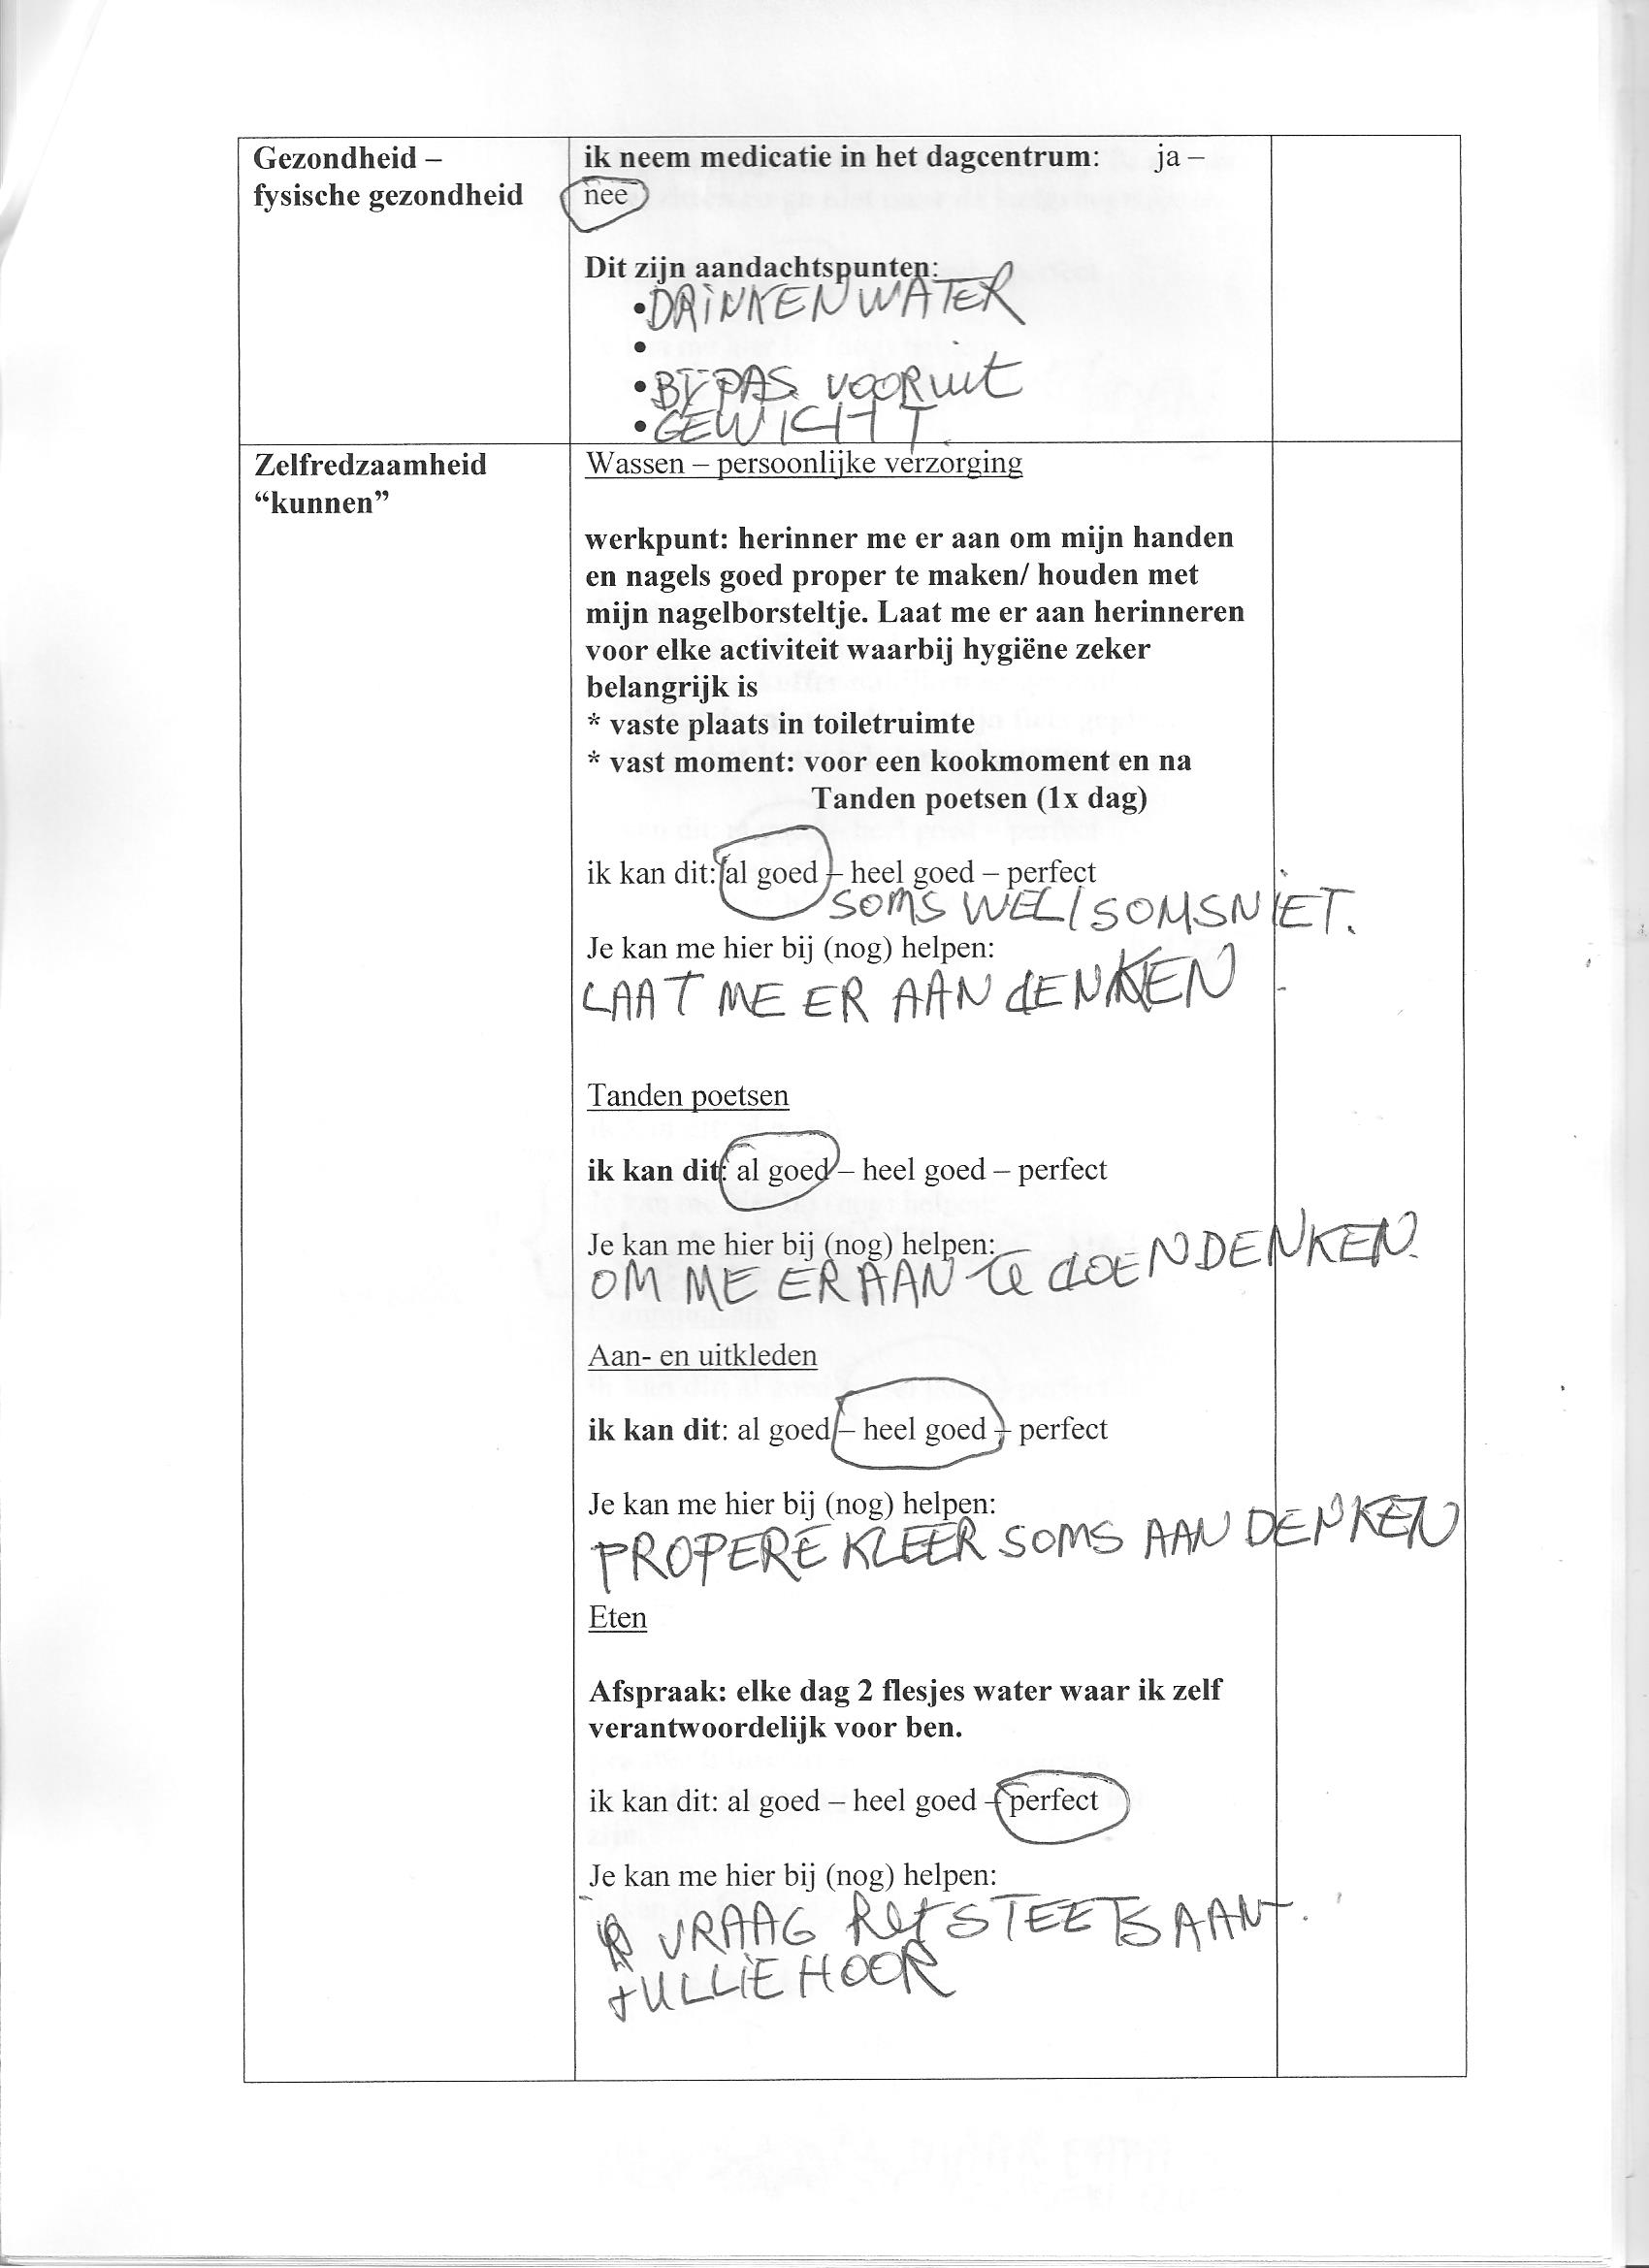 Gezondheid –
fysische gezondheid
ik neem medicatie in het dagcentrum: ja –
nee
Dit zijn aandachtspunten:
•DRINKEN WATER
•
•BYPAS vooruit
•GEWICHT
Zelfredzaamheid
“kunnen”
Wassen – persoonlijke verzorging
werkpunt: herinner me er aan om mijn handen
en nagels goed proper te maken/ houden met
mijn nagelborsteltje. Laat me er aan herinneren
voor elke activiteit waarbij hygiëne zeker
belangrijk is
* vaste plaats in toiletruimte
* vast moment: voor een kookmoment en na
Tanden poetsen (1x dag)
ik kan dit: al goed – heel goed – perfect
SOMS WEL/SOMSNIET.
Je kan me hier bij (nog) helpen:
LAAT ME ER AAN dENKEN
Tanden poetsen
ik kan dit: al goed – heel goed – perfect
Je kan me hier bij (nog) helpen:
OM ME ER AAN te doEN DENKEN.
Aan- en uitkleden
ik kan dit: al goed – heel goed – perfect
Je kan me hier bij (nog) helpen:
PROPERE KLEER SOMS AAN DENKEN
Eten
Afspraak: elke dag 2 flesjes water waar ik zelf
verantwoordelijk voor ben.
ik kan dit: al goed – heel goed – perfect
Je kan me hier bij (nog) helpen:
VRAAG STEETS AAN
JULLIE HOOR